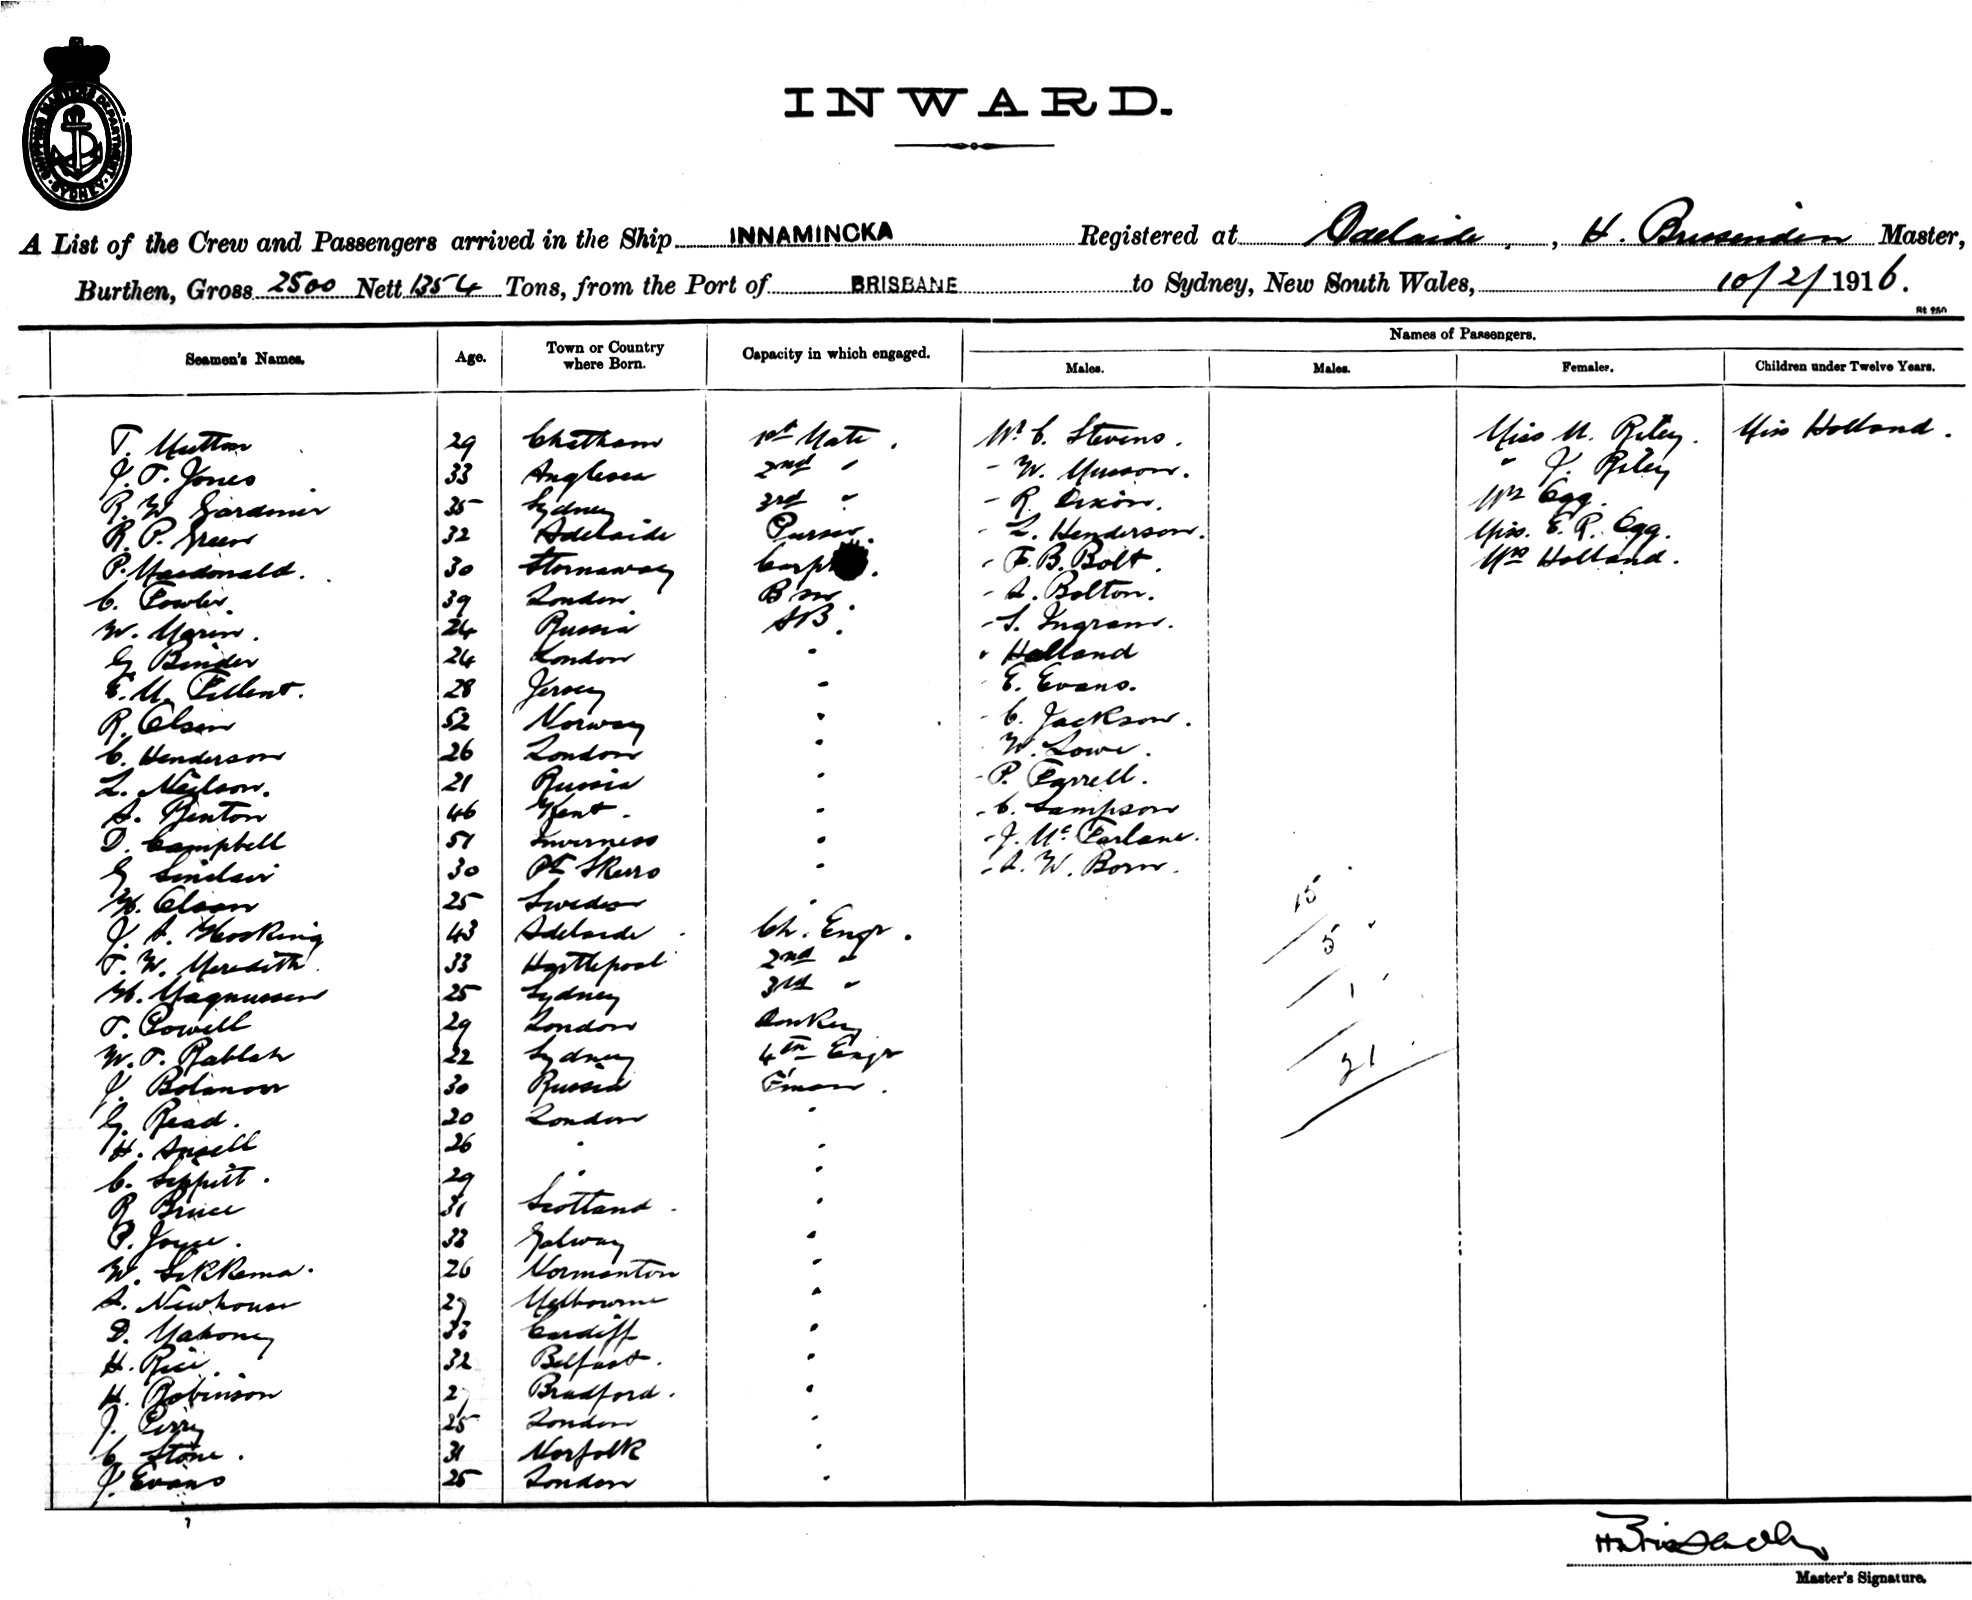 SHIPPING MASTERS DEPARTMENT SYDNEY
INWARD.
A List of the Crew and Passengers arrived in the Ship INNAMINCKA Registered at Adelaide, H. Brissenden Master,
Burthen, Gross 2500 Nett 1354 Tons, from the Port of BRISBANE to Sydney, New South Wales, 10/2/1916.
St 250
Seamen's Names. Age. Town or Country where Born. Capacity in which engaged. Names of Passengers.
Males. Males. Females. Children under Twelve Years.
T. Mutton 29 Chatham 1st Mate. Mr. C. Stevens. Miss M. Riley. Miss Holland.
J. T. Jones 33 Anglesea 2nd " - W. Musson. " J. Riley
R. W. Gardiner 35 Sydney 3rd " - R. Dixon. Mrs Egg.
R. P. Green 32 Adelaide Purser. - L. Henderson. Miss. E. R. Egg.
P. Macdonald. 30 Stornaway Carp. - F. B. Bolt. Mrs Holland.
C. Fowler. 39 London B'm. - A. Bolton.
W. Marin. 24 Russia AB. - S. Ingram.
G. Binder 24 London " " Holland
E. M. Fillent. 28 Jersey " - E. Evans.
R. Olsen 52 Norway " - C. Jackson.
C. Henderson 26 London " - W. Lowe.
L. Neilson. 21 Russia " - P. Farrell.
A. Renton 46 Kent. " - C. Sampson
D. Campbell 51 Inverness " - J. McFarlane.
G. Sinclair 30 Pt Skerro " - A. W. Born.
H. Olson 25 Sweden " 15
J. A. Hosking 43 Adelaide Ch. Engr. 5
T. W. Meredith 33 Hartlepool 2nd "
H. Magnussen 25 Sydney 3rd " 1
T. Powell 29 London Donkey
W. T. Rablah 22 Sydney 4th Engr 21
J. Bolanoor 30 Russia F'man.
G. Read. 20 London "
H. Ansell 26 " "
C. Sippitt. 29 " "
R Bruce 31 Scotland "
P. Joyce. 33 Galway "
W. Sikkema. 26 Normanton "
A. Newhouse 27 Melbourne "
D. Mahoney 33 Cardiff "
H. Rice. 32 Belfast. "
H. Robinson 27 Bradford. "
J. Perry 25 London "
C Stone. 31 Norfolk "
J. Evans 25 London "
H Brissenden
Master's Signature.